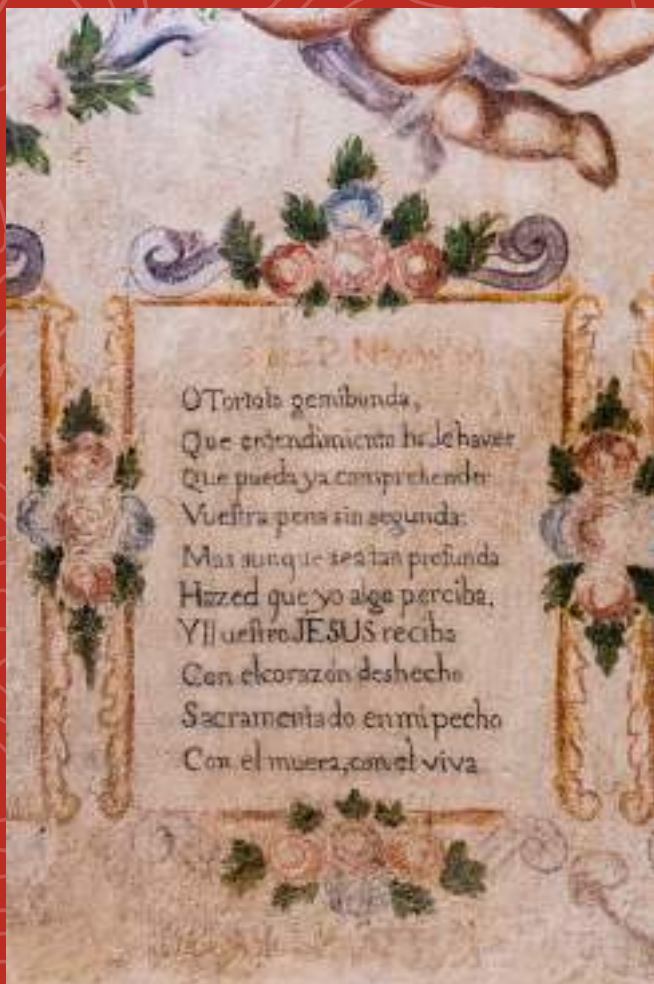 O Tortola gemibunda,
Que entendimiento ha de haver
Que pueda ya comprehender
Vuestra pena sin segunda:
Mas aunque sea tan profunda
Hazed que yo algo perciba,
Y Vuestro JESUS reciba
Con el corazón deshecho
Sacramentado en mi pecho
Con el muera, con el viva